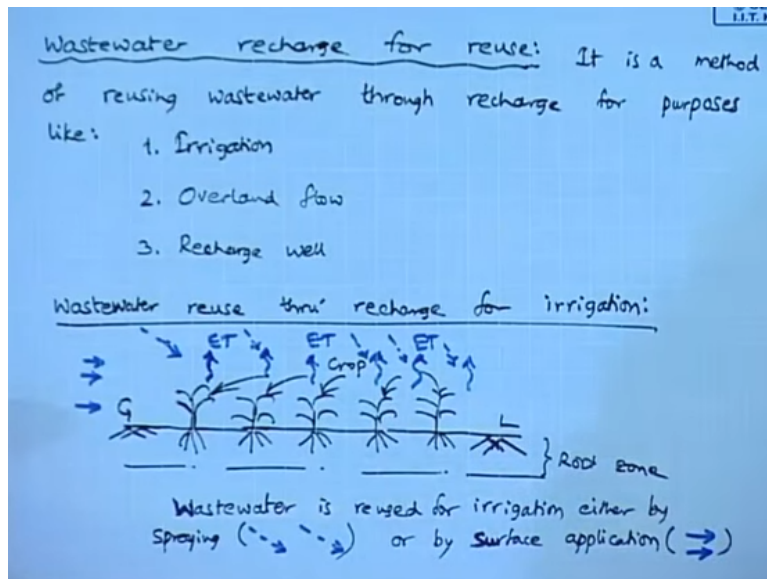 I.I.T. K
Wastewater recharge for reuse: It is a method
of reusing wastewater through recharge for purposes
like:
1. Irrigation
2. Overland flow
3. Recharge well
Wastewater reuse thru' recharge for irrigation:
ET ET ET
Crop
G L
Root zone
Wastewater is reused for irrigation either by
Spraying ( ) or by surface application ( )